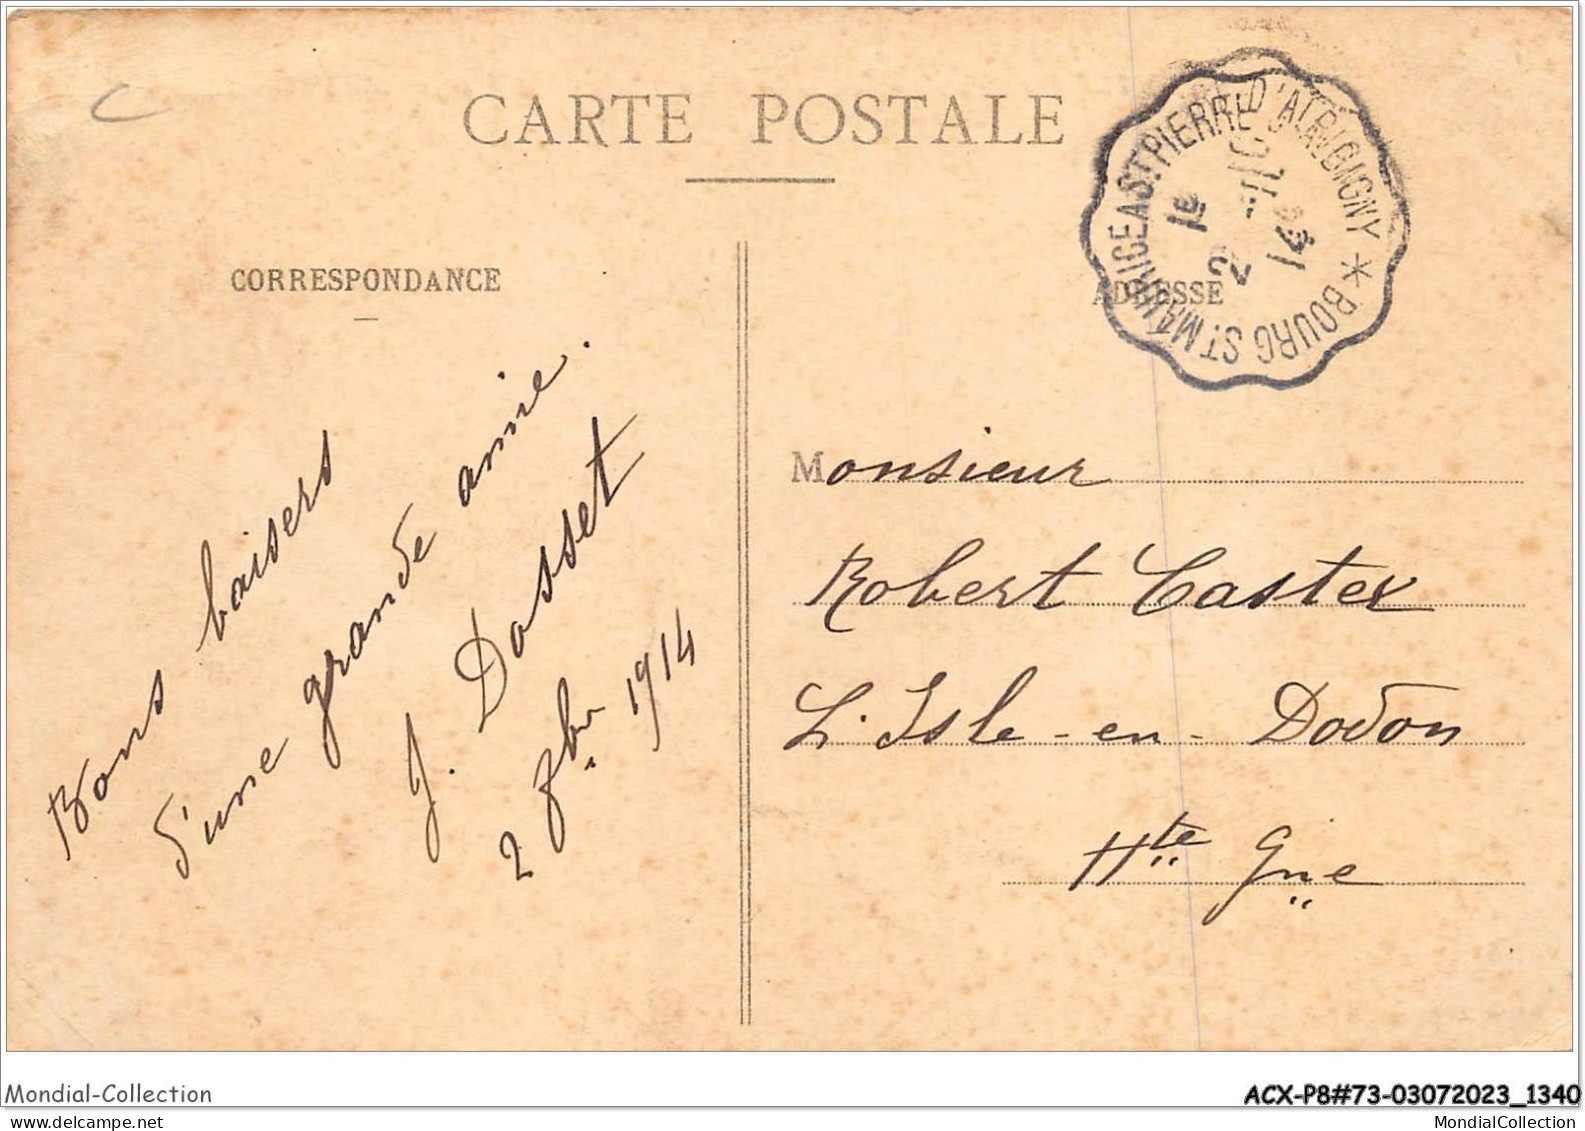 CARTE POSTALE
CORRESPONDANCE
ADRESSE
BOURG ST MAURICE A ST PIERRE D'ALBIGNY *
1E
2
14
Bons baisers
d'une grande amie.
J. Dosset
2 8bre 1914
Monsieur
Robert Castex
L'Isle-en-Dodon
Hte Gne
Mondial-Collection
ACX-P8#73-03072023_1340
MondialCollection
MondialCollection